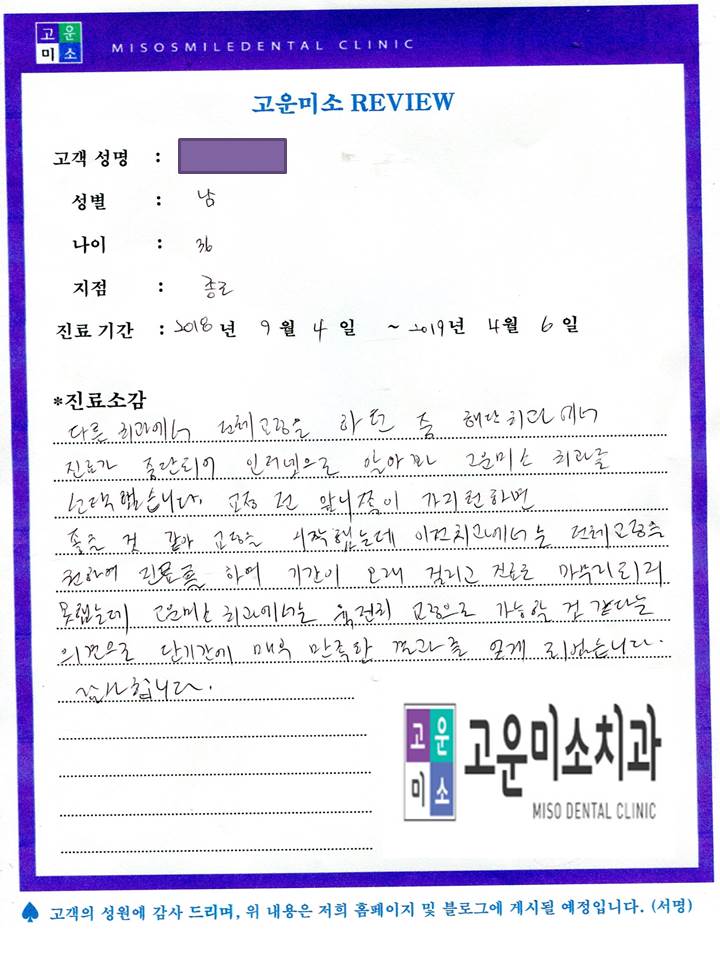 고운
미소
MISOSMILEDENTAL CLINIC
고운미소 REVIEW
고객 성명 :
성별 : 남
나이 : 36
지점 : 종로
진료 기간 : 2018년 9월 4일 ~ 2019년 4월 6일
*진료소감
다른 치과에서 전체교정을 하던 중 해단치과에서
진료가 중단되어 인터넷으로 알아봐 고운미소 치과를
선택했습니다. 교정 전 앞니쪽이 가지런하면
좋을 것 같아 교정을 시작했는데 이전치과에서는 전체교정을
권하여 진료를 하여 기간이 오래 걸리고 진료도 마무리되지
못했는데 고운미소 치과에서는 교정으로 가능할 것 같다는
의견으로 단기간에 매우 만족한 결과를 얻게 되었습니다.
감사합니다.
고운
미소
고운미소치과
MISO DENTAL CLINIC
♠ 고객의 성원에 감사 드리며, 위 내용은 저희 홈페이지 및 블로그에 게시될 예정입니다. (서명)